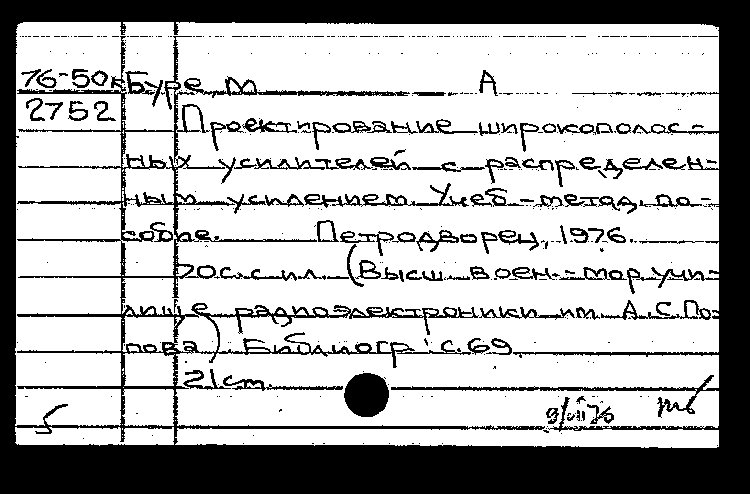 76-50к Буре, М А
2752
Проектирование широкополос-
ных усилителей с распределен-
ным усилением. Учеб-метод. по-
собие. Петродворец, 1976.
70с. с ил. (Высш. воен.-мор. учи-
лище радиоэлектроники им. А.С. По-
пова). Библиогр: с.69.
21 cm.